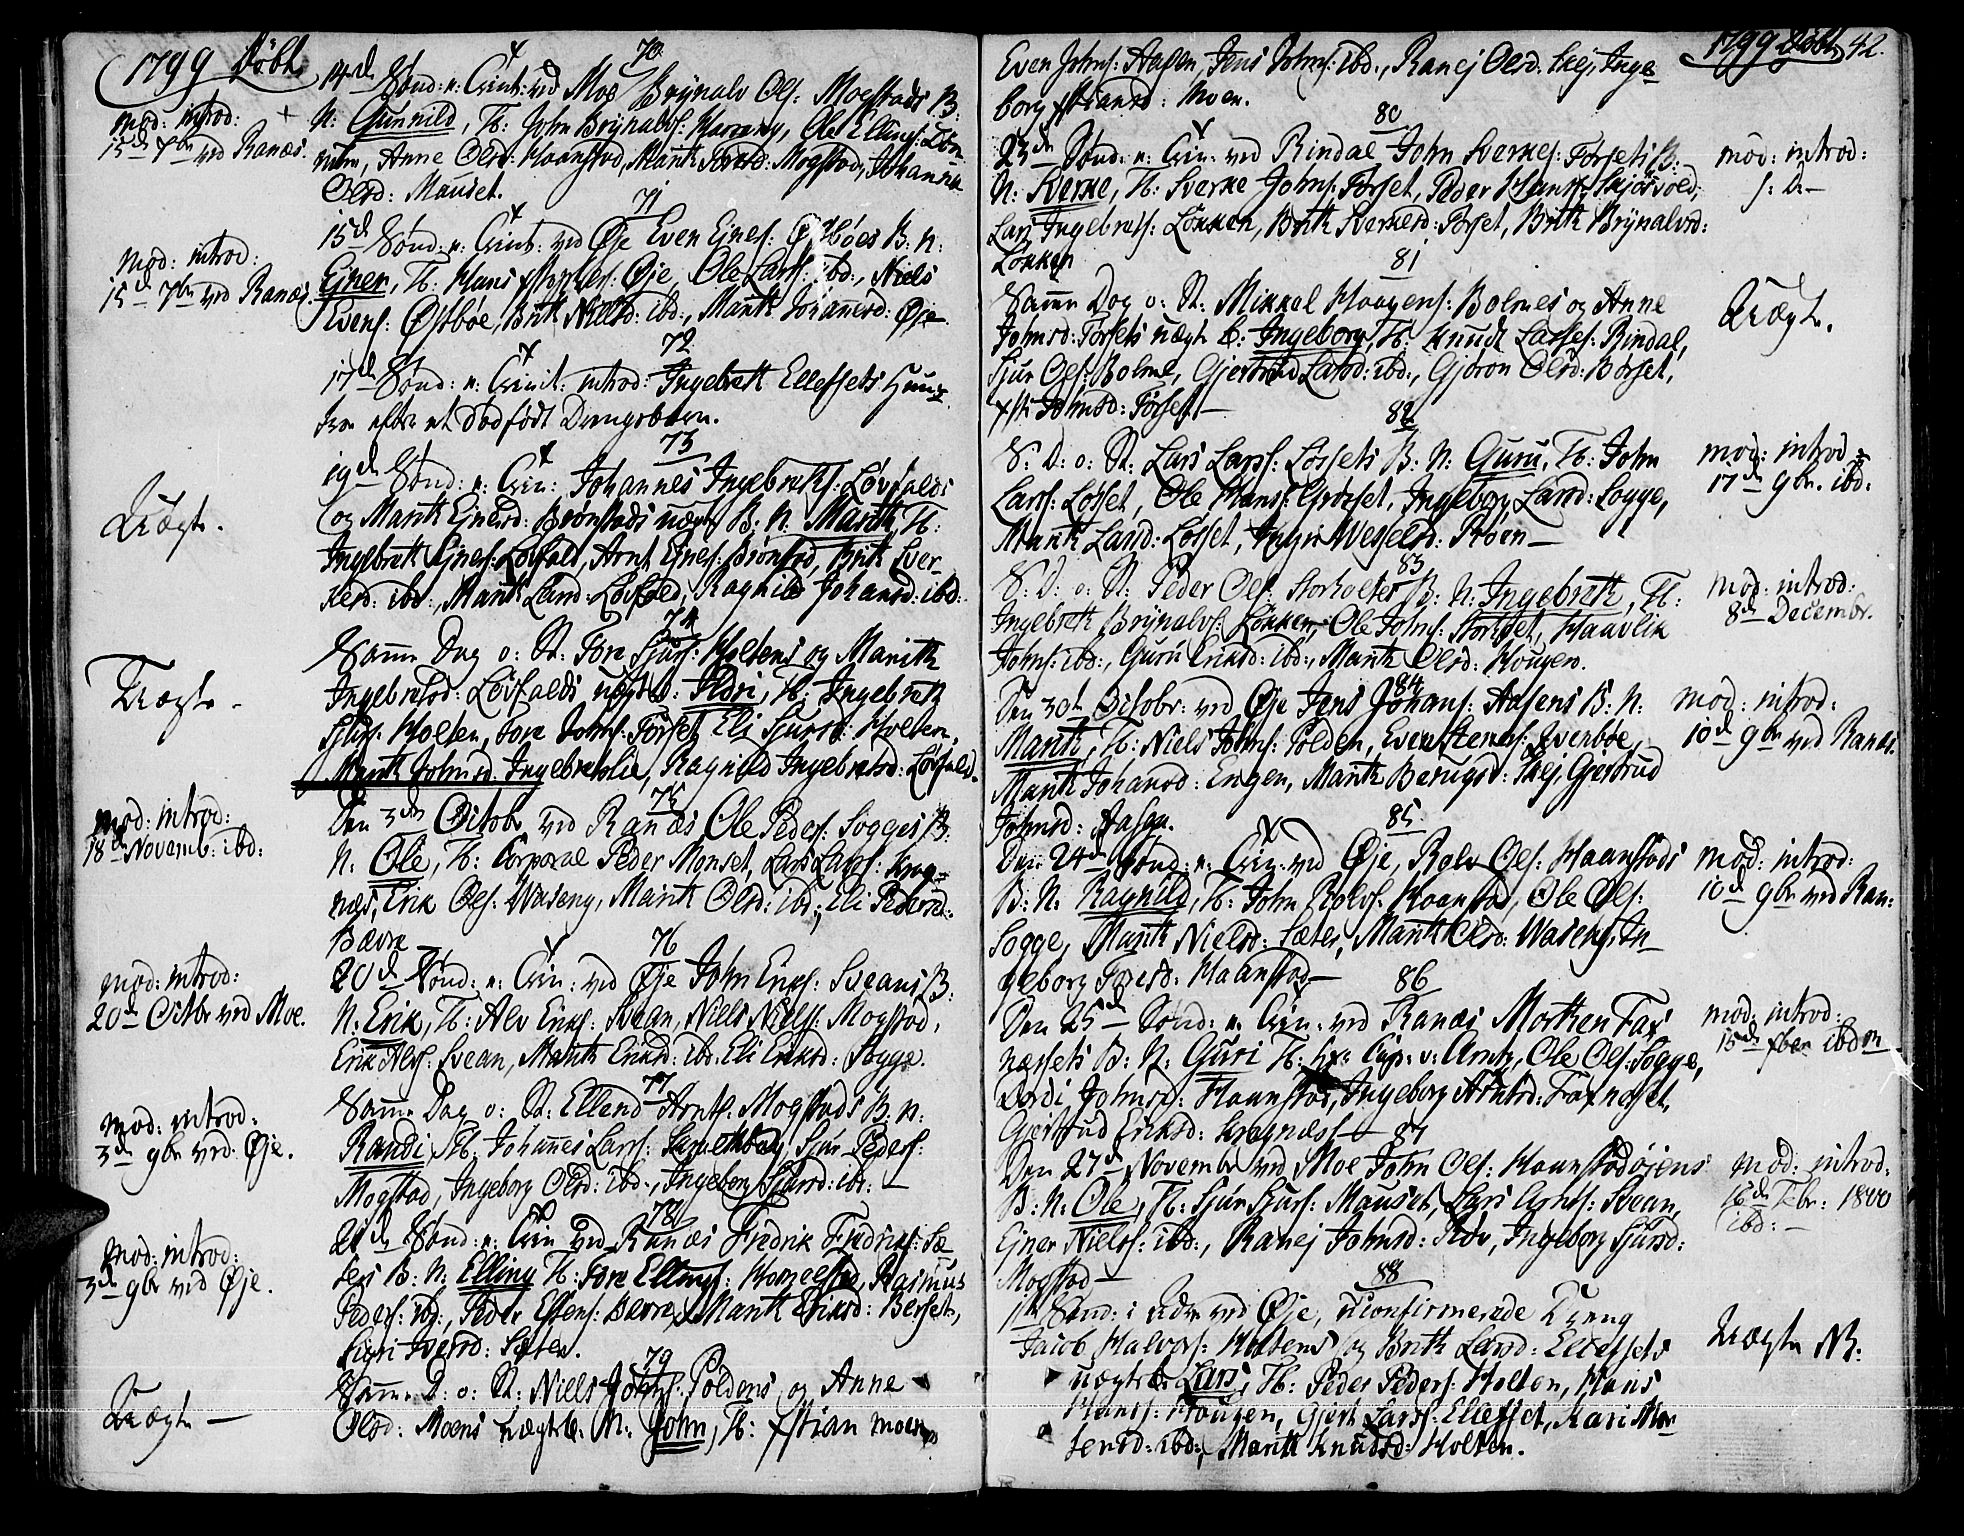 1799 Döbte
70
14de Sönd: e: Trinit: ved Moe Brynalv Ols: Mogstads B:
N: Gunnild, T: John Brynalvs: Ole Ellings:
Anne Olsd: Haanstad, Marith Toresd: Mogstad, Johanna
Olsd: Mauset.
mod: introd:
15de 7br ved Ranæs.
71
15de Sönd: e: Trinit: ved Øje Even Ejners: Østbøes B: N:
Ejner, T: Hans Øje, Ole Lars: ibd:, Niels
Evens: Østbøe, Brit Nielsd: ibd:, Marith Johannesd: Øje
mod: introd:
15de 7br ved Ranæs.
72
17de Sönd: e: Trinit: introd: Ingebreth Ellefsets Huus-
tro efter et dødfødt Drengebarn.
73
19de Sönd: e: Trin: Johannes Ingebreths: Løvfalds
og Marith Ejnersd: Brønstads uægte B: N: Marith T:
Ingebreth Ejners: Løvfald, Arnt Ejners: Brønstad, Brith Sver-
kesd: ibd:, Marith Larsd: Løvfald, Ragnild Johansd: ibd:
Uægte.
74
Samme Dag o: St: Tore Sjurs: Holtens og Marith
Ingebretsd: Løvfalds uægte b: Sidri, T: Ingebreth
Sjurs: Holten, Tore Johns: Førset Eli Sjursd: Holten,
Marith Johnsd: Ingebretslie, Ragnild Ingebretsd: Løvfald.
Uægte -
75
Den 3de Octobr ved Ranæs Ole Peders: Sogges B:
N: Ole, T: Corporal Peder Monset, Lars Lars: Krog-
næs, Erik Ols: Waseng, Marith Olsd: ibd:, Eli Pedersd:
Bævre
mod: introd:
18de Novemb: ibd:
76
20de Sönd: e: Trin: ved Øje John Eriks: Sveans B:
N: Erik, T: Alv Eriks: Svean, Niels Niels: Mogstad,
Erik Alvs: Svean, Marith Eriksd: ibd: Eli Eriksd: Sogge.
mod: introd:
20de Octbr ved Moe.
77
Samme Dag o: St: Ellend Arnts: Mogstads B: N:
Randi, T: Johannes Lars: Sjur Peders:
Mogstad, Ingeborg Olsd: ibd:, Ingeborg Sjursd: ibd: -
mod: introd:
3de 9br ved Øje.
78
21de Sönd: e: Trin ved Ranæs Fredrik Fredriks: Sæ-
ters B: N: Elling T: Tore Ellings: Rasmus
Peders: ibd:, Peder Estens: Bævre, Marith Eriksd: Berset,
Sigri Iversd: Sæter.
mod: introd:
3de 9br ved Øje.
79
Samme D: o: St: Niels Johns: Poldens og Anne
Olsd: Moens uægte b: N: John, T: Xstian Moen,
Uægte -
1799 Döbte 42.
Even Johns: Aasen, Jens Johns: ibd:, Ranej Olsd: Skej, Inge-
borg Xstiansd: Moen.
80
23de Sönd: e: Trin: ved Rindal John Sverkes: Førsets B:
N: Sverke, T: Sverke Johns: Førset, Peder Hans: Skjøsvold,
Lars Ingebrets: Løkken, Brith Sverkesd: Førset, Brith Brynalvsd:
Løkken
mod: introd:
s: D: -
81
Samme Dag o: St: Mikkel Haagens: Bolmes og Anne
Johnsd: Førsets uægte b: Ingeborg, T: Knudt Lasses: Rindal,
Sjur Ols: Bolme, Gjertrud Larsd: ibd:, Gjøron Olsd: Børset,
Johnsd: Førset -
Uægte.
82
S: D: o: St: Lars Lars: Løssets B: N: Guru, T: John
Lars: Løsset, Ole Hans: Grøsset, Ingeborg Larsd: Sogge,
Marith Larsd: Løsset, Røen -
mod: introd:
17de 9br. ibd:
83
S: D: o: St: Peder Ols: Storholtes B: N: Ingebreth, T:
Ingebreth Brynalvs: Løkken, Ole Johns: Storholt, Haavlik
Johns: ibd:, Guru Eriksd: ibd:, Marith Olsd: Hougen.
mod: introd:
8de Decembr.
84
Den 30te Octobr: ved Øje Jens Johans: Aasens B: N:
Marith, T: Niels Johns: Polden, Even Stens: Evenbøe,
Marith Johansd: Engen, Marith Skej, Gjertrud
Johnsd: Aasen.
mod: introd:
10de 9br ved Ranæs.
85.
Den 24de Sönd: e: Trin: ved Øje, Rolv Ols: Haanstads
B: N: Ragnild, T: John Rolvs: Haanstad, Ole Ols:
Sogge, Marith Nielsd: Sæter, Marith Olsd: Waseng, In-
geborg Toresd: Haanstad -
mod: introd:
10de 9br ved Ran:
86
Den 25de Sönd: e: Trin: ved Ranæs Morthen Fax-
næssets B: N: Guri T: Hr Cap: v: Arntz, Ole Ols: Sogge,
Dordi Johnsd: Haanstad, Ingeborg Arntsd: Faxneset,
Gjertrud Eriksd: Krognæss -
mod: introd:
15de Xber ibdm
87
Den 27de Novembr ved Moe John Ols: Haanstadøjens
B: N: Ole, T: Sjur Sjurs: Mauset, Lars Arnts: Svean,
Ejner Niels: ibd:, Ranej Johnsd: Ingeborg Sjursd:
Mogstad -
mod: introd:
16de Febr: 1800
ibd: -
88
1ste Sönd: i Adv: ved Øje, uconfirmerede Dreng
Jacob Halvors: Holtens og Brith Larsd: Ellefsets
uægte b: Lars, T: Peder Peders: Holten, Hans
Hans: Hougen, Gjert Lars: Ellefset, Kari Mor-
tensd: ibd:, Marith Knudsd: Holten.
Uægte NB: